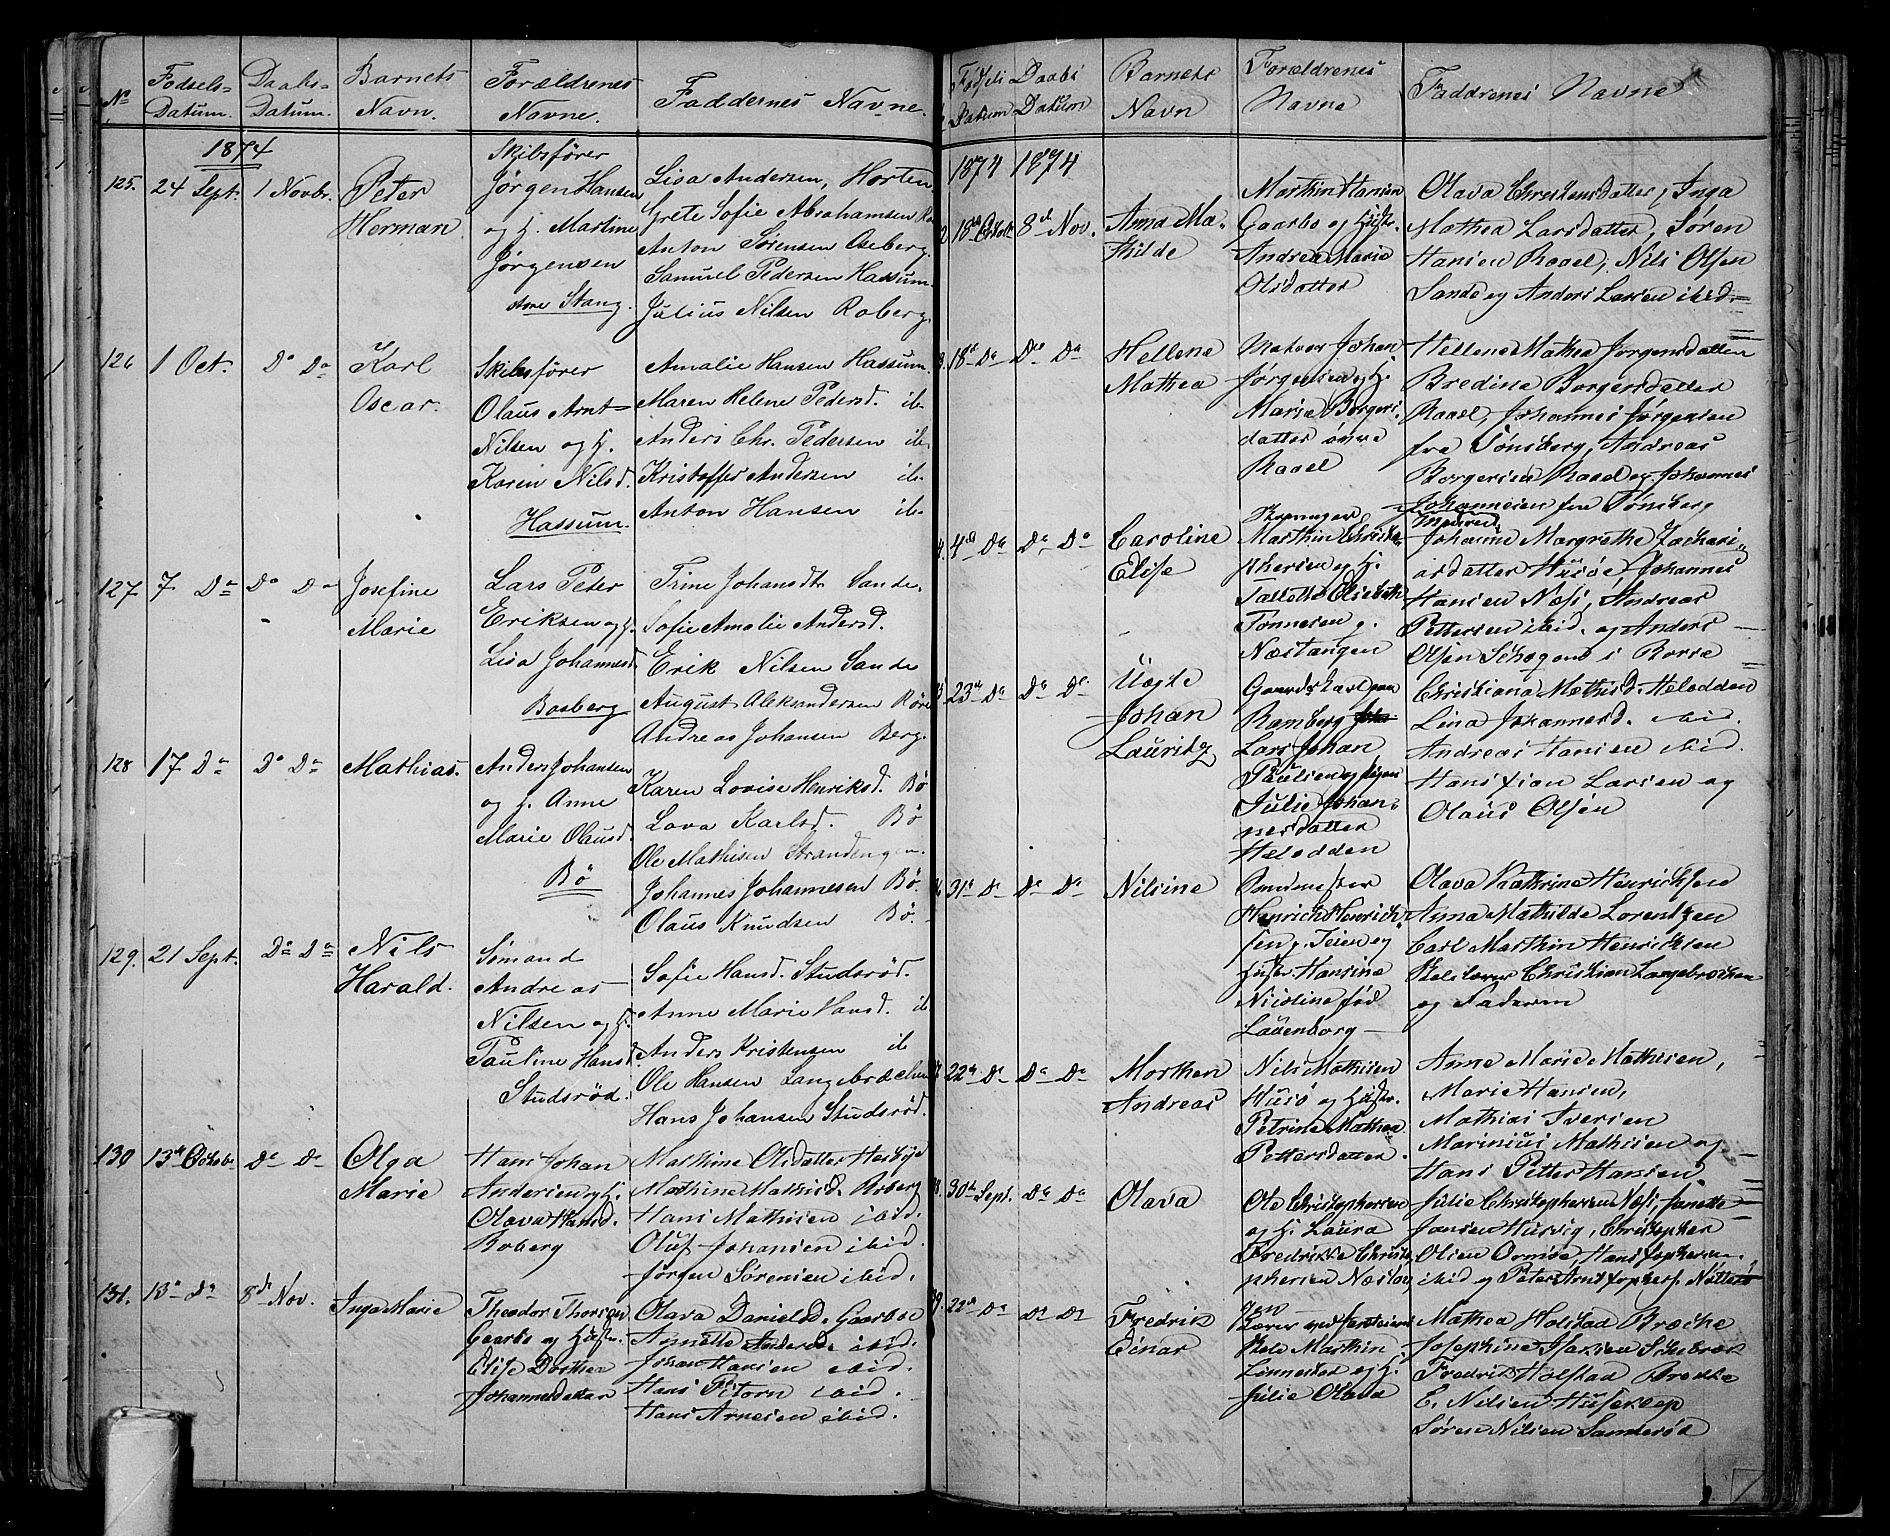 No Fødsels- Datum. Daabs- Datum. Barnets Navn. Forældrenes Navne. Faddernes Navne.
1874
125. 24 Sept. 1 Novbr. Peter Herman
Skibsfører
Jørgen Hansen
og h. Martine
Jørgensen
store Stang.
Lisa Andersen, Horten
Grete Sofie Abrahamsen
Anton Sørensen Oseberg.
Samuel Pedersen Hassum.
Julius Nilsen Roberg.
126 1 Oct. Do Da Karl Oscar.
Skibsfører
Olaus Arnt
Nilsen og h.
Karin Nilsd.
Hassum.
Amalie Hansen Hassum.
Maren Helene Pedersd. ib
Anders Chr. Pedersen ib
Kristoffer Andersen ib
Anton Hansen ib
127 7 Da Do Da Josefine Marie
Lars Peter
Eriksen og h.
Lisa Johannesd.
Basberg
Trine Johansdt. Sande.
Sofie Amalie Andersd.
Erik Nilsen Sande
August Aleksandersen Røre
Andreas Johansen Berg.
128 17 Da Do Da Mathias.
Anders Johansen
og h. Anne
Marie Olausd.
Bø
Karen Lovise Henriksd. Bø
Lava Karlsd. Bø
Ole Mathisen Strandengen.
Johannes Johannesen Bø.
Olaus Knudsen Bø.
129. 21 Sept. Do Da Nils Harald.
Sømand
Andreas
Nilsen og h.
Pauline Hansd.
Studsrød.
Sofie Hansd. Studsrød.
Anne Marie Hansd. ib
Anders Kristensen ib
Ole Hansen Langebræchen
Hans Johansen Studsrød.
130 13de Octob. Da Da Olga Marie
Hans Johan
Andersen og h.
Olava Hansd.
Roberg
Mathine Olsdatter Hesbye
Mathine Mathisd. Roberg
Hans Mathisen ibid.
Oluf Johansen ibid.
Jørgen Sørensen ibid.
131. 13de Da 8de Nov. Inga Marie
Theodor Thorsen
Gaarbo og Hustr.
Elise Dorthea
Johannesdatter
Olava Danielsd. Gaarboe
Annette Andersd. ibid.
Johan Hansen ibid.
Hans Petern ibid.
Hans Arnesen ibid.
Fødsels Datum Daabs Datum Barnets Navn Forældrenes Navne Faddrenes Navne
1874 1874
2 18de Octob. 8de Nov. Anna Mathilde
Marthin Hansen
Gaarbo og Hustr.
Andrea Marie
Olsdatter
Olava Christensdatter, Inga
Mathea Larsdatter, Søren
Hansen Raael, Nils Olsen
Sande og Anders Larsen ibid.
3. 18de Da Do Da Hellene Mathea
Matros Johan
Jørgensen og h.
Marie Borgers-
datter øvre
Raael
Hellene Mathea Jørgensdatter
Bredine Borgersdatter
Raael, Johannes Jørgensen
fra Tønsberg, Andreas
Borgersen Raael og Johannes
Johannesen fra Tønsberg
4. 4de Da Da Da Caroline Elise
Marthin Christo-
phersen og h.
Tallette Elisebeth
Tønnesen g.
Næstangen
Johanne Margrethe Zachari-
asdatter Husøe, Johannes
Hansen Næs, Andreas
Pettersen ibid. og Anders
Olsen Schogend i Borre
5 23de Da Da Da Uægte Johan Lauritz
Gaardskarl paa
Ramberg
Lars Johan
Paulsen og pigen
Julie Johan-
nesdatter
Helodden
Christiana Mathisd. Helodden
Lina Johannesd. ibid.
Andreas Hansen ibid.
Hans Larsen og
Olaus Olsen
6 31te Da Da Da Nilsine
Henrich Henrich-
sen g. Teien og
Hustr. Hansine
Nicoline fød
Lauenborg
Olava Kathrine Henrichsen
Anna Mathilde Lorentzen
Carl Marthin Henrichsen
Christian Langebrechen
og Faderen
22de Da Da Da Morthen Andreas
Nils Mathisen
Husø og Hustr.
Petrine Mathea
Pettersdatter.
Anne Marie Mathisen,
Marie Hansen,
Mathias Iversen
Marinius Mathisen og
Hans Petter Hansen
8. 30te Sept. Da Da Olava
Ole Christophersen
og h. Laura
Fredrikke Christo-
phersen Næstan
Julie Christophersen Næs, Janette
Jansen Husvig, Christopher
Olsen Ormøe, Hans
ibid og Peter Arnt Nøtterø
9. 22de Da Da Da Fredrik Einar
gen
Linnestad og h.
Julie Olava
Mathea Holstad Bræche
Josephine
Fredrik Holstad Brekke
C. Nilsen Huseklep
Søren Nilsen Sanderød